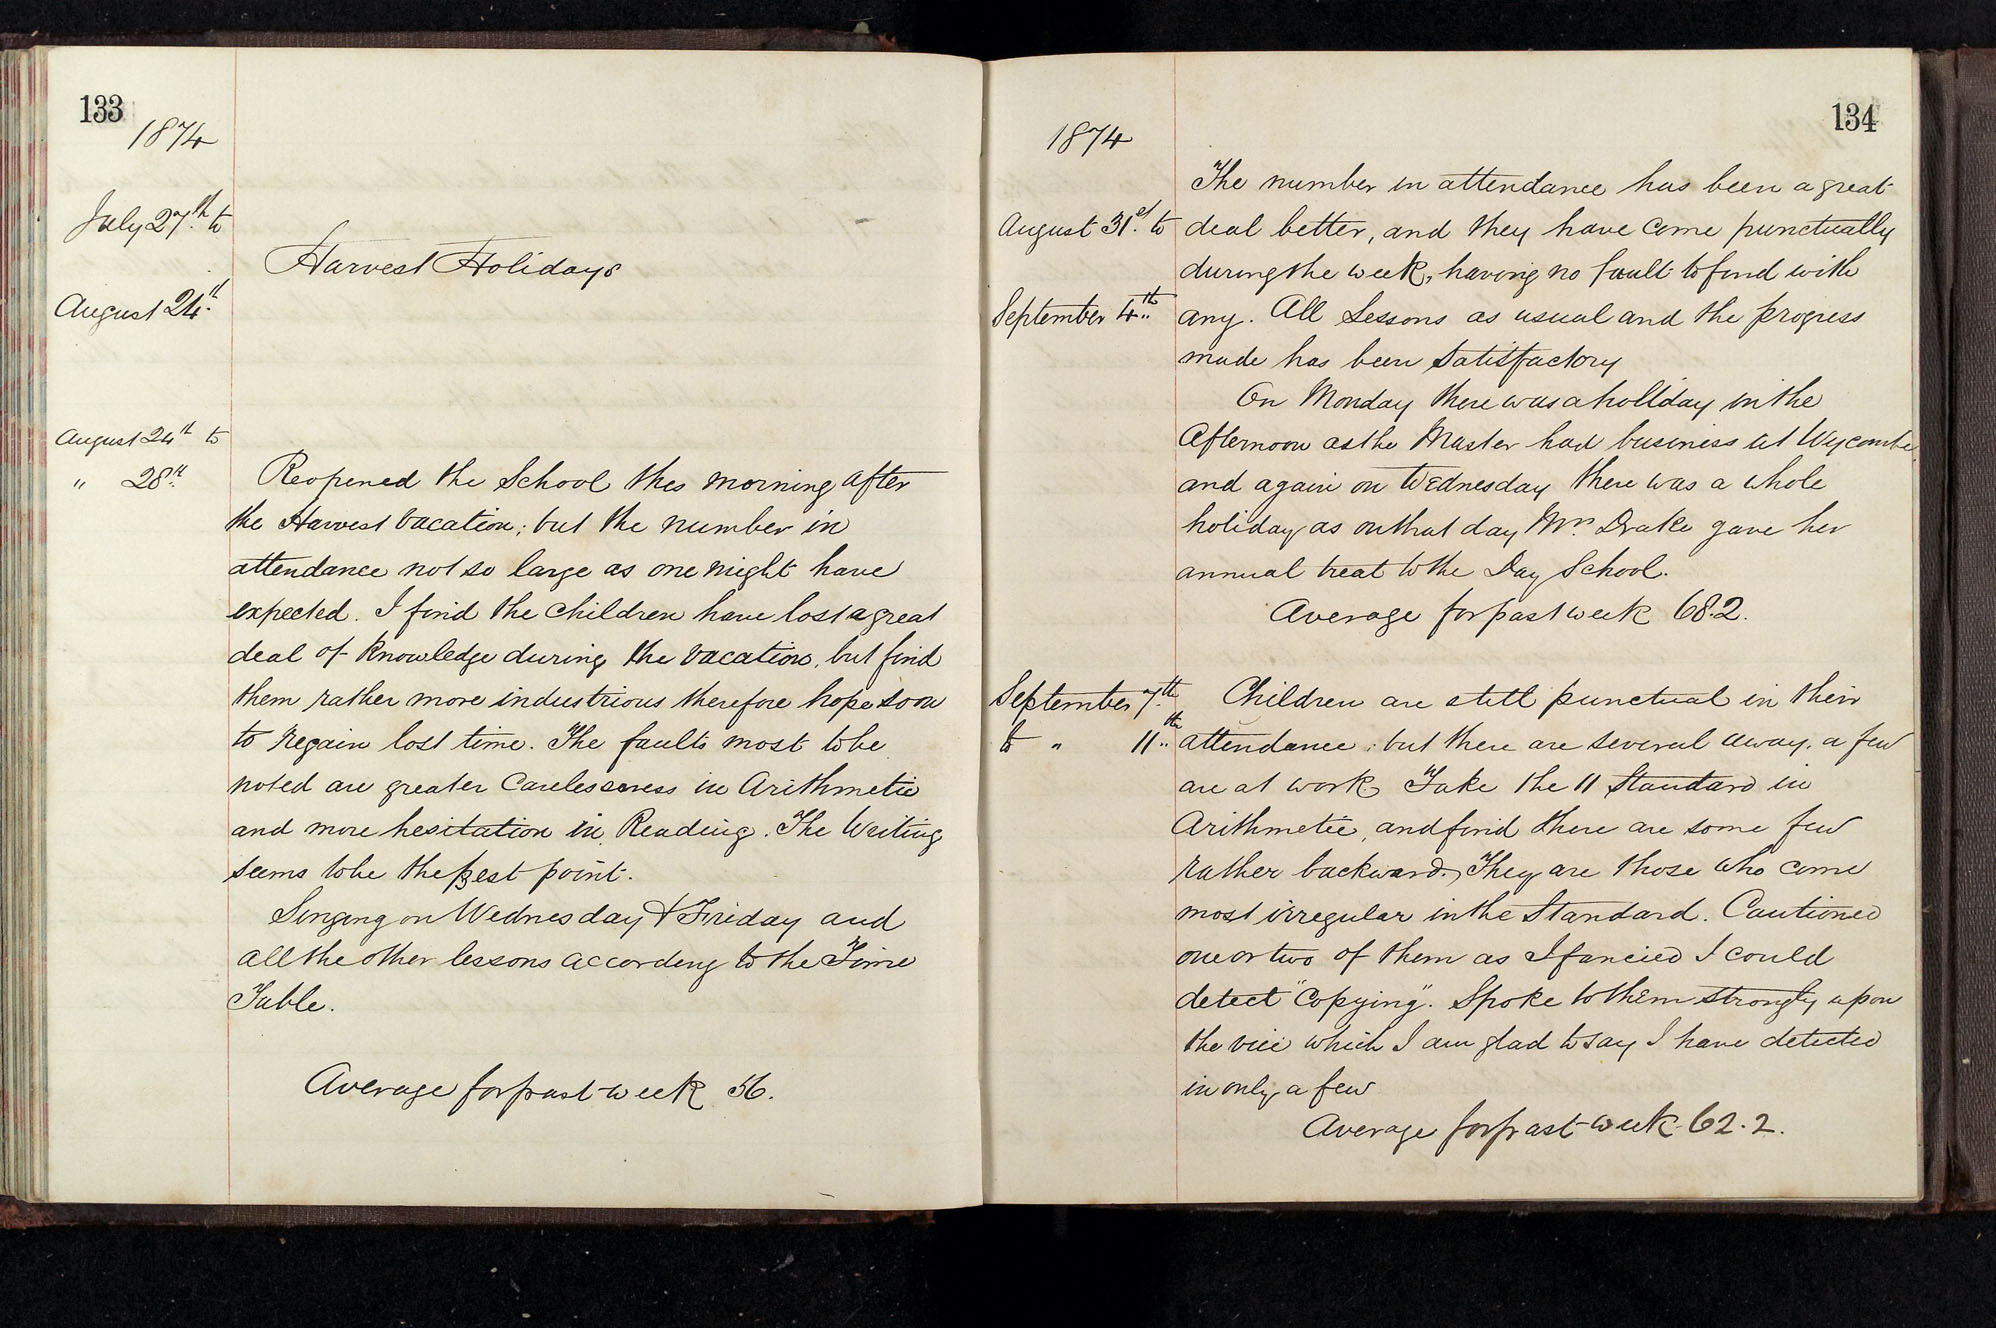 133
1874
July 27th to
Harvest Holidays
August 24th
August 24th to
" 28th
Reopened the School this morning after
the Harvest vacation; but the number in
attendance not so large as one might have
expected. I find the children have lost a great
deal of knowledge during the vacation, but find
them rather more industrious therefore hope soon
to regain lost time. The faults most to be
noted are greater carelessness in Arithmetic
and more hesitation in Reading. The Writing
seems to be the best point.
Singing on Wednesday & Friday and
all the other lessons according to the Time
Table.
Average for past week 56.
134
1874
The number in attendance has been a great
August 31st to deal better, and they have come punctually
during the week, having no fault to find with
September 4th any. All Lessons as usual and the progress
made has been satisfactory
On Monday there was a holiday in the
Afternoon as the Master had business at Wycombe,
and again on Wednesday there was a whole
holiday as on that day Mrs. Drake gave her
annual treat to the Day School.
Average for past week 68.2.
September 7th Children are still punctual in their
to " 11th attendance; but there are several away, a few
are at work. Take the II Standard in
Arithmetic, and find there are some few
rather backward. They are those who come
most irregular in the Standard. Cautioned
one or two of them as I fancied I could
detect "Copying". Spoke to them strongly upon
the vice which I am glad to say I have detected
in only a few
Average for past week 62.2.